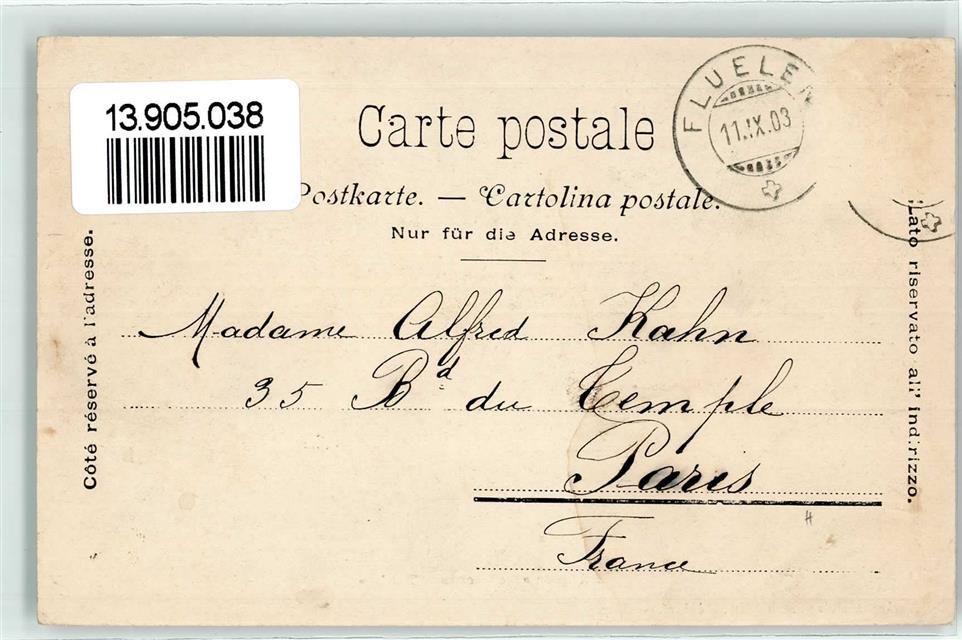 13.905.038
Carte postale
Postkarte. — Cartolina postale.
Nur für die Adresse.
FLUELEN
11.IX.03
Côté réservé à l'adresse.
Lato riservato all' indirizzo.
Madame Alfred Kahn
35 Bd du Temple
Paris
France